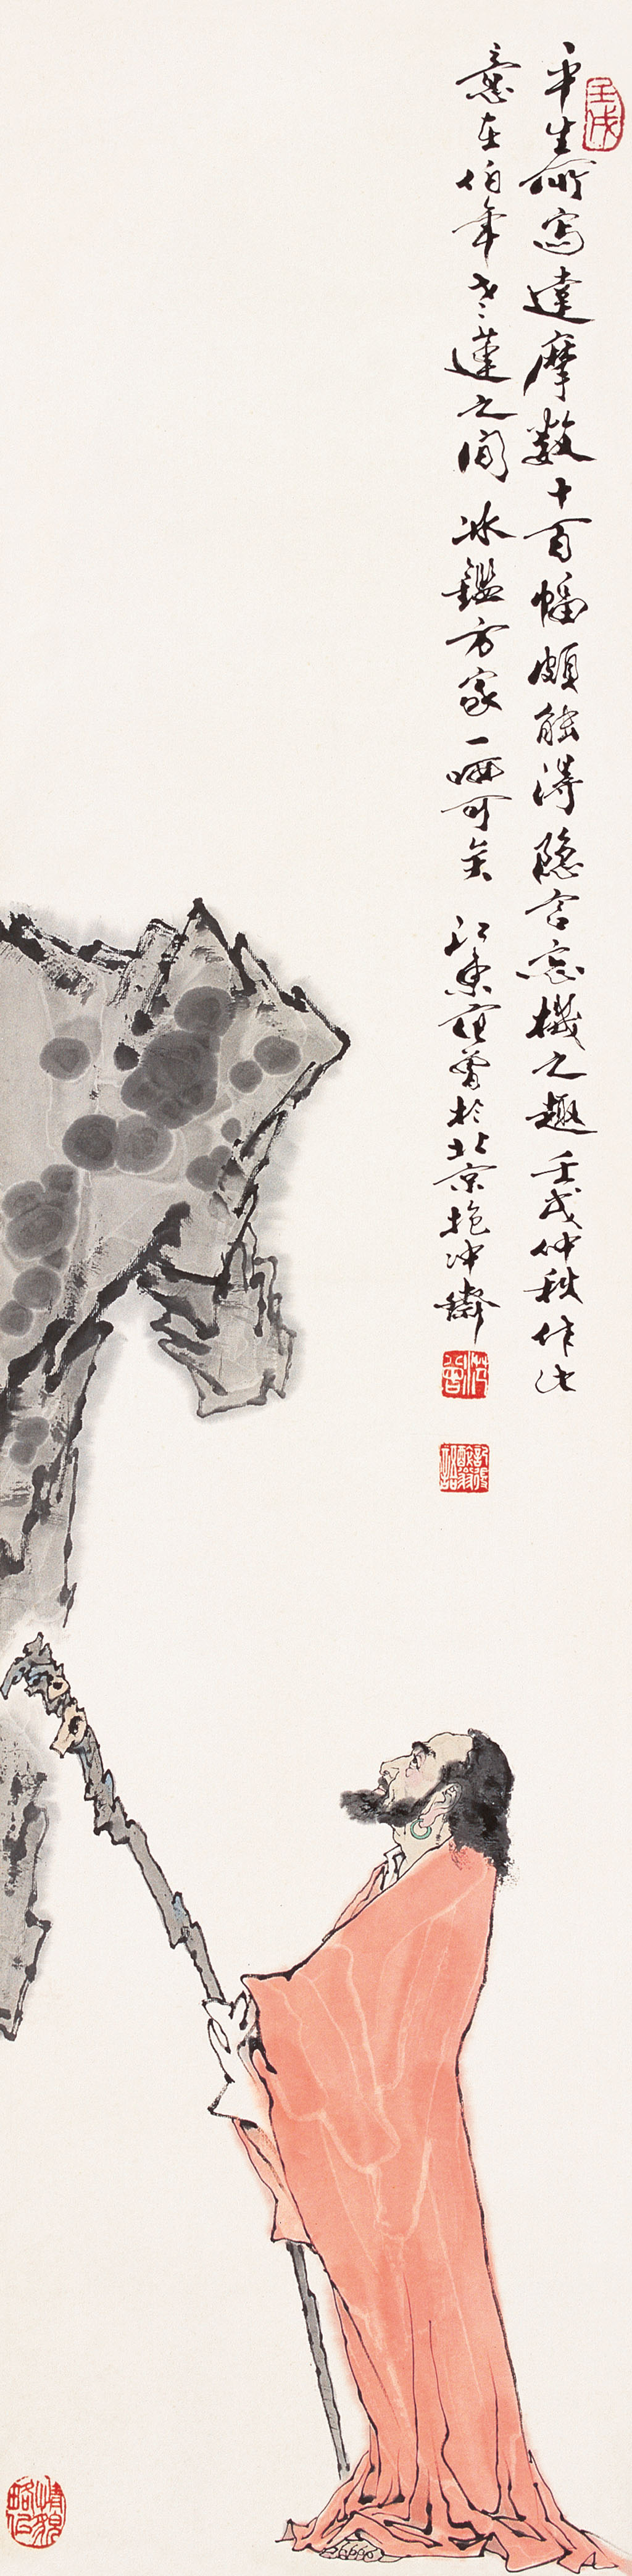 平生所写達摩数十百幅頗能得隐含忘機之趣壬戌仲秋作此
意在伯年老蓮之间冰鑑方家一哂可矣江東范曾於北京抱冲齋
壬戌
范曾